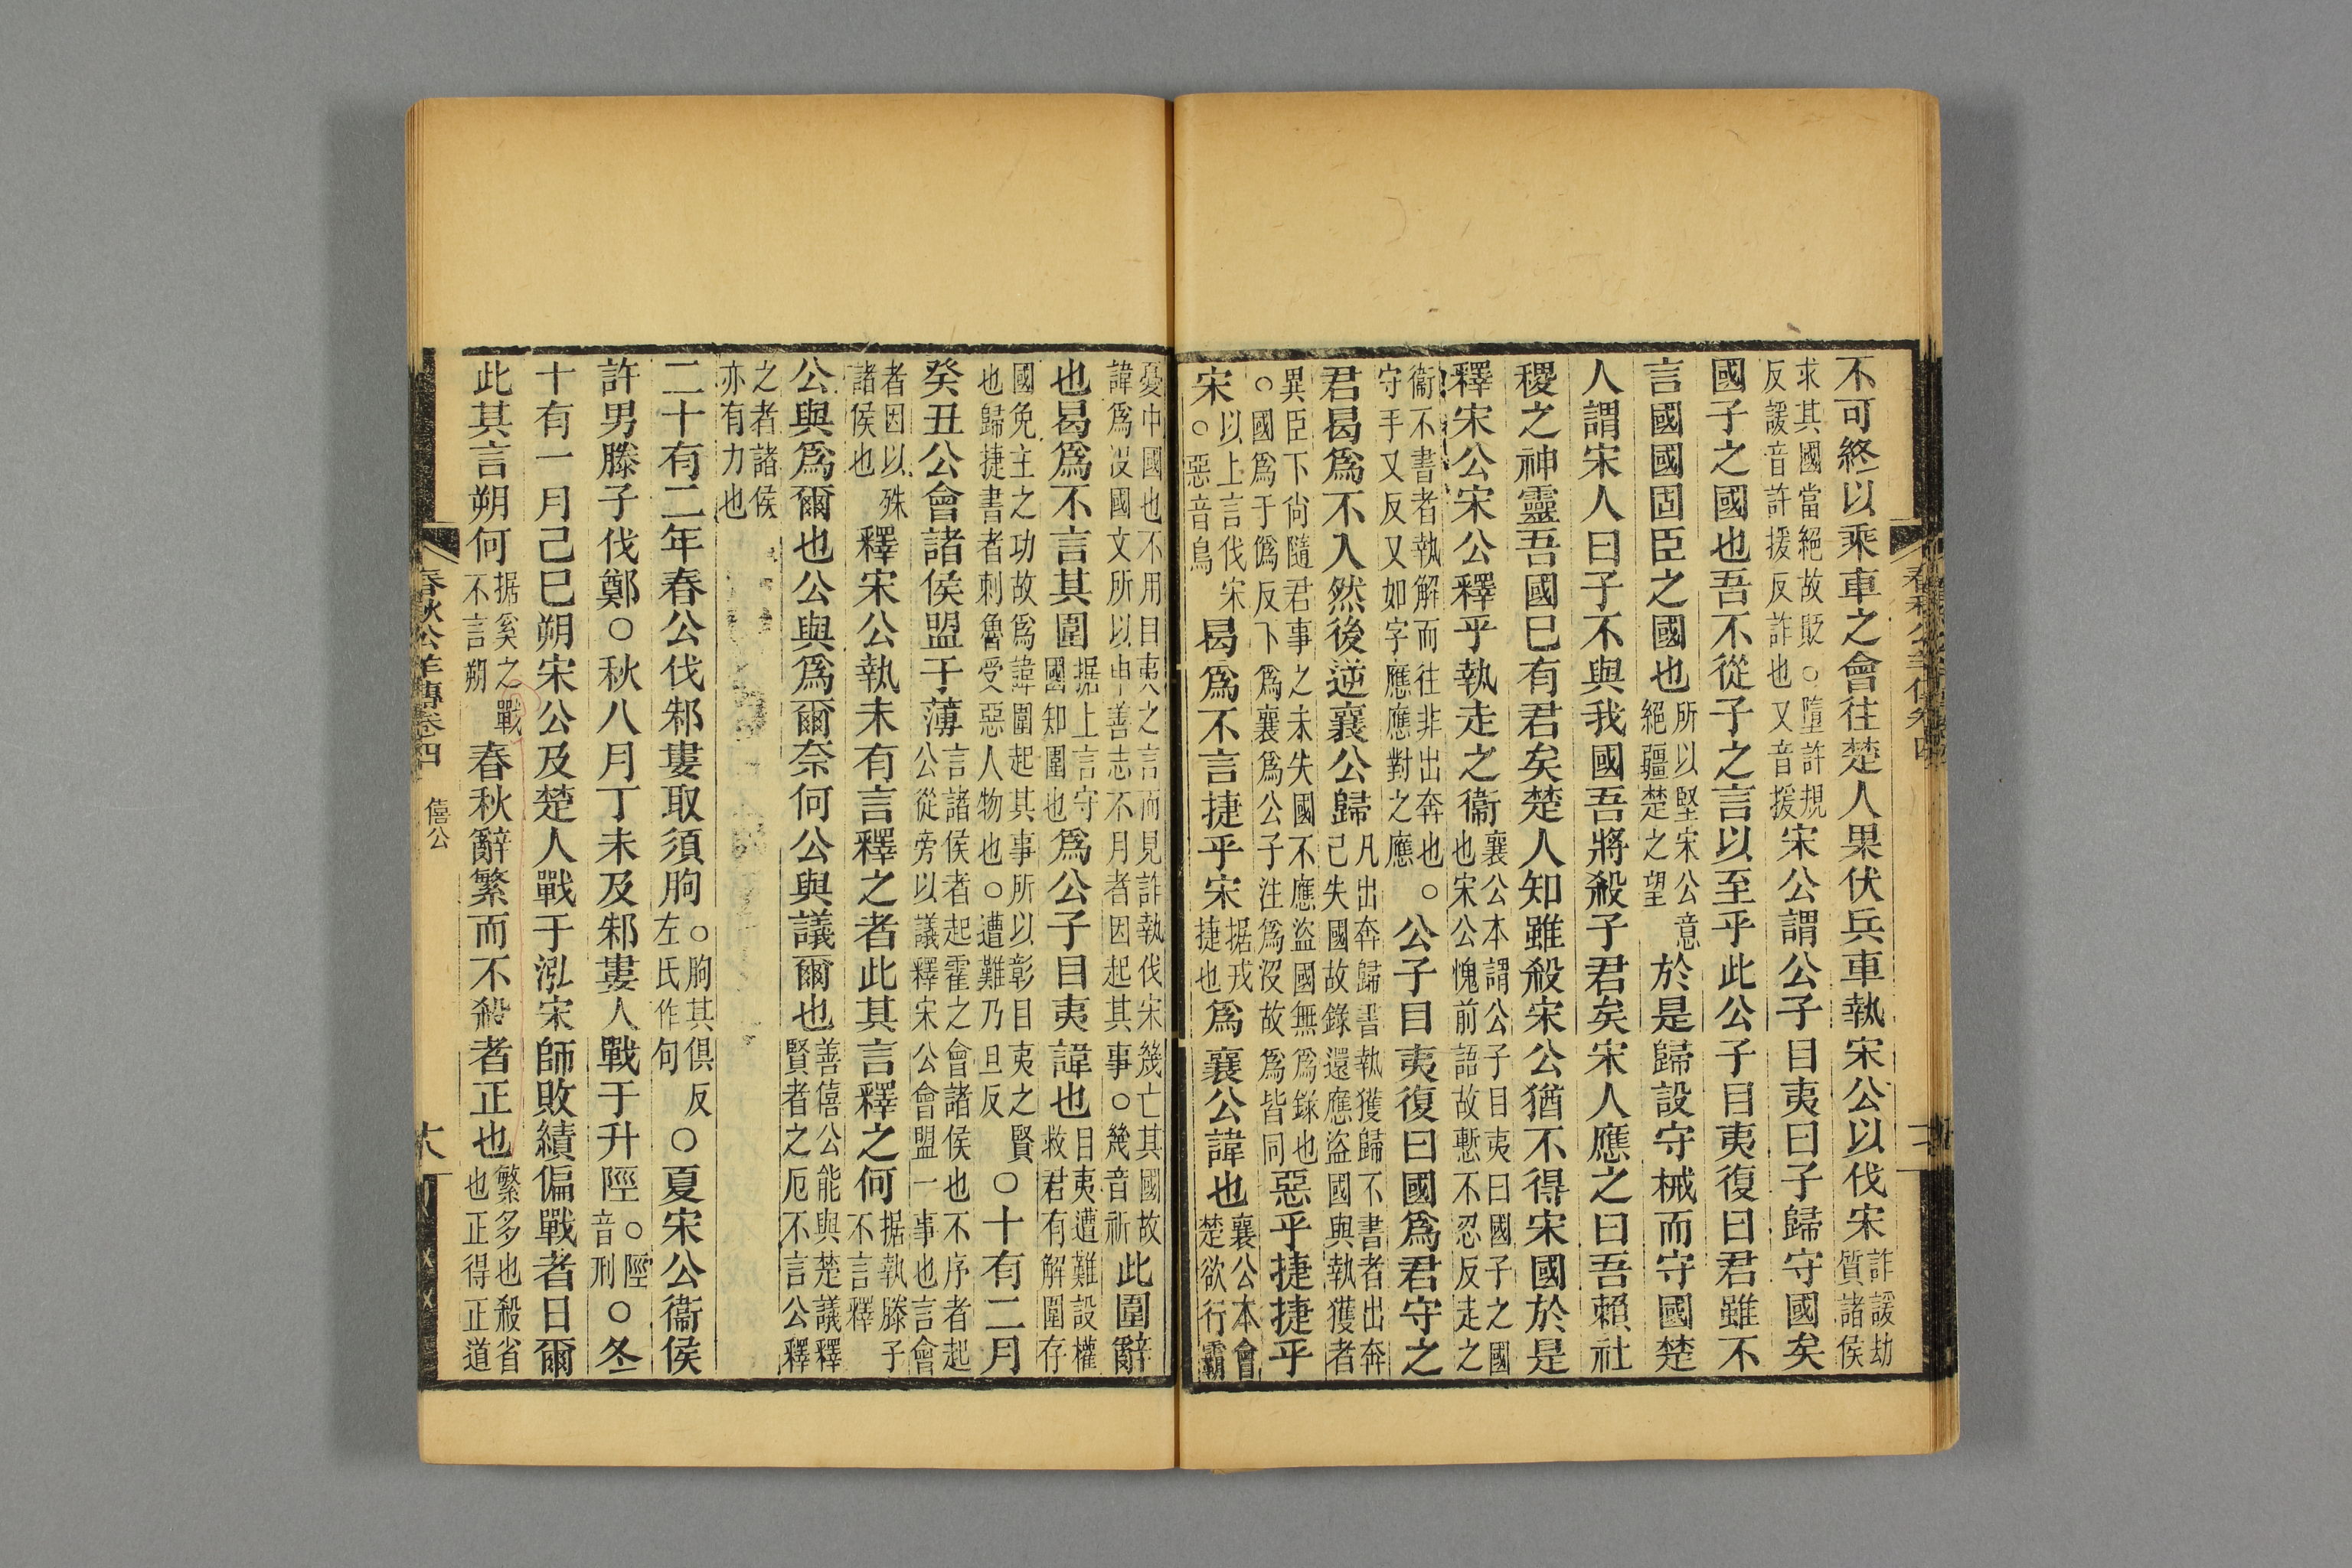 不可終以乘車之會往楚人果伏兵車執宋公以伐宋詐諼劫質諸侯
求其國當絕故貶○墮許規反諼音許援反詐也又音援宋公謂公子目夷曰子歸守國矣
國子之國也吾不從子之言以至乎此公子目夷復曰君雖不
言國國固臣之國也所以堅宋公意絕疆楚之望於是歸設守械而守國楚
人謂宋人曰子不與我國吾將殺子君矣宋人應之曰吾賴社
稷之神靈吾國已有君矣楚人知雖殺宋公猶不得宋國於是
釋宋公宋公釋乎執走之衞襄公本謂公子目夷曰國子之國也宋公愧前語故慙不忍反走之
衞不書者執解而往非出奔也○守手又反又如字應應對之應公子目夷復曰國爲君守之
君曷爲不入然後逆襄公歸凡出奔歸書執獲歸不書者出奔已失國故錄還應盜國與執獲者
異臣下尙隨君事之未失國不應盜國無爲錄也○國爲于僞反下爲襄爲公子注爲沒故爲皆同惡乎捷捷乎
宋以上言伐宋○惡音烏曷爲不言捷乎宋据戎捷也爲襄公諱也襄公本會楚欲行霸
憂中國也不用目夷之言而見詐執伐宋幾亡其國故諱爲沒國文所以申善志不月者因起其事○幾音祈此圍辭
也曷爲不言其圍据上言守國知圍也爲公子目夷諱也目夷遭難設權救君有解圍存
國免主之功故爲諱圍起其事所以彰目夷之賢也歸捷書者刺魯受惡人物也○遭難乃旦反○十有二月
癸丑公會諸侯盟于薄言諸侯者起霍之會諸侯也不序者起公從旁以議釋宋公會盟一事也言會
者因以殊諸侯也釋宋公執未有言釋之者此其言釋之何据執滕子不言釋
公與爲爾也公與爲爾奈何公與議爾也善僖公能與楚議釋賢者之厄不言公釋
之者諸侯亦有力也
二十有二年春公伐邾婁取須朐○朐其俱反左氏作句○夏宋公衞侯
許男滕子伐鄭○秋八月丁未及邾婁人戰于升陘○陘音刑○冬
十有一月己巳朔宋公及楚人戰于泓宋師敗績偏戰者日爾
此其言朔何据奚之戰不言朔春秋辭繁而不殺者正也繁多也殺省也正得正道
春秋公羊傳卷四 僖公